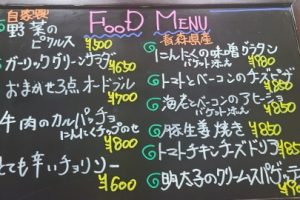 FOOD MENU
自家製
野菜の
ピクルス
¥500
ガーリックグリーンサラダ
¥650
おまかせ3点オードブル
¥700
牛肉のカルパッチョ
にんにくチップのせ
¥800
とても辛いチョリソー
¥600
青森県産
にんにくの味噌グラタン
バケット添え
¥980
トマトとベーコンのチーズピザ
¥850
海老とベーコンのアヒージョ
バケット添え
¥850
豚生姜焼き
¥850
トマトチキンチーズドリア
¥850
明太子のクリームスパゲッティ